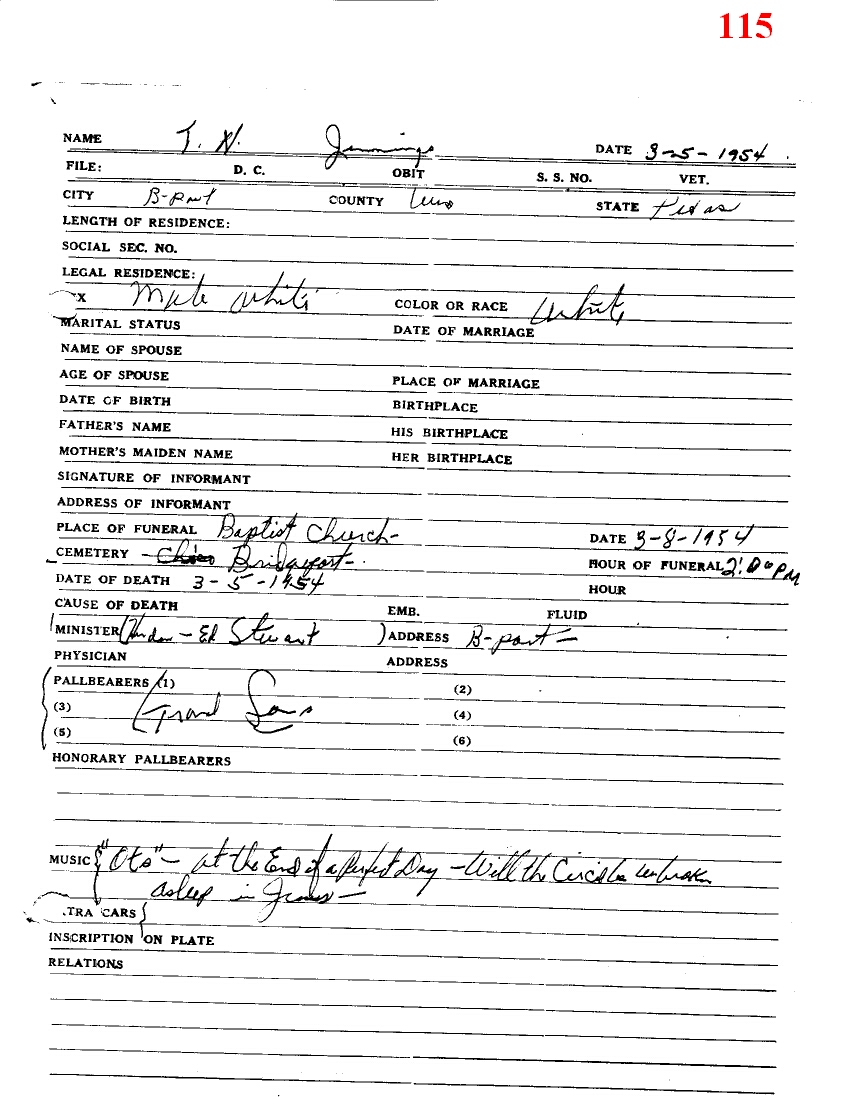 115
NAME T. N. Jennings DATE 3-5-1954
FILE: D. C. OBIT S. S. NO. VET.
CITY B-port COUNTY STATE Texas
LENGTH OF RESIDENCE:
SOCIAL SEC. NO.
LEGAL RESIDENCE:
X Male White COLOR OR RACE White
MARITAL STATUS DATE OF MARRIAGE
NAME OF SPOUSE
AGE OF SPOUSE PLACE OF MARRIAGE
DATE OF BIRTH BIRTHPLACE
FATHER'S NAME HIS BIRTHPLACE
MOTHER'S MAIDEN NAME HER BIRTHPLACE
SIGNATURE OF INFORMANT
ADDRESS OF INFORMANT
PLACE OF FUNERAL Baptist Church- DATE 3-8-1954
CEMETERY Bridgeport- HOUR OF FUNERAL 2:00 PM
DATE OF DEATH 3-5-1954 HOUR
CAUSE OF DEATH EMB. FLUID
MINISTER ( - Ed Stewart ) ADDRESS B-port-
PHYSICIAN ADDRESS
PALLBEARERS (1) (2)
(3) Grand Sons (4)
(5) (6)
HONORARY PALLBEARERS
MUSIC { "Oto" - at the End of a Perfect Day - Will the Circle be unbroken
asleep in Jesus -
TRA CARS
INSCRIPTION ON PLATE
RELATIONS